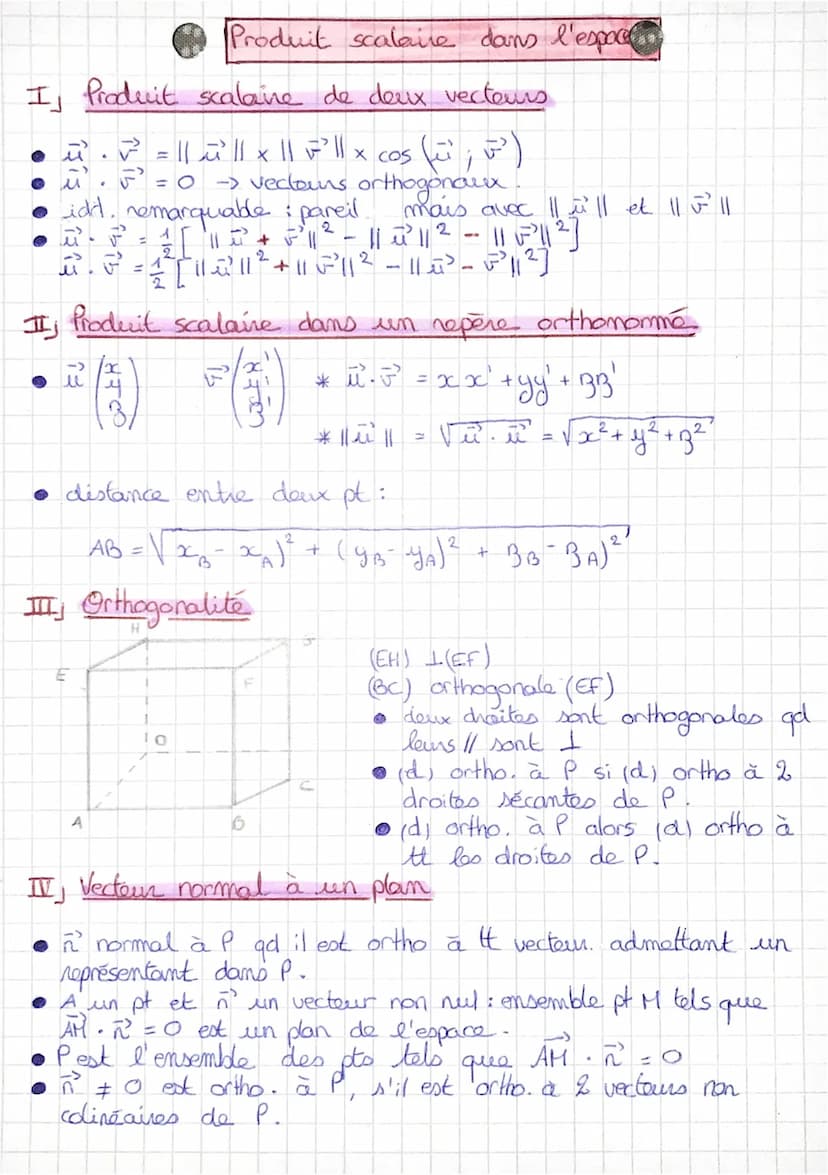 Produit scalaire dans l'espace
I, Produit scalaire de deux vecteurs
• u⃗ . v⃗ = || u⃗ || x || v⃗ || x cos (u⃗ ; v⃗)
• u⃗ . v⃗ = 0 -> vecteurs orthogonaux.
• idt. remarquable : pareil mais avec || u⃗ || et || v⃗ ||
• u⃗ . v⃗ = 1/2 [ || u⃗ + v⃗ ||² - || u⃗ ||² - || v⃗ ||² ]
u⃗ . v⃗ = 1/2 [ || u⃗ ||² + || v⃗ ||² - || u⃗ - v⃗ ||² ]
II, Produit scalaire dans un repère orthonormé
• u⃗ (x y z) v⃗ (x' y' z') * u⃗ . v⃗ = xx' + yy' + zz'
* || u⃗ || = √(u⃗ . u⃗) = √(x² + y² + z²)
• distance entre deux pt :
AB = √ x_B - x_A)² + (y_B - y_A)² + z_B - z_A)²
III, Orthogonalité
H
E F
D
C
A B
(EH) ⊥ (EF)
(BC) orthogonale (EF)
• deux droites sont orthogonales qd
leurs // sont ⊥
• (d) ortho. à P si (d) ortho à 2
droites sécantes de P.
• (d) ortho. à P alors (d) ortho à
tt les droites de P.
IV, Vecteur normal à un plan
• n⃗ normal à P qd il est ortho à tt vecteur. admettant un
représentant dans P.
• A un pt et n⃗ un vecteur non nul : ensemble pt M tels que
AM⃗ . n⃗ = 0 est un plan de l'espace.
• P est l'ensemble des pts tels que AM⃗ . n⃗ = 0
• n⃗ ≠ 0 est ortho. à P, s'il est ortho. à 2 vecteurs non
colinéaires de P.